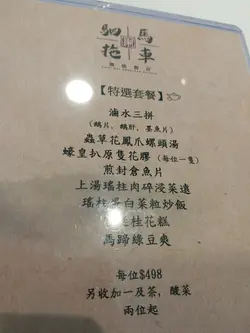 駟馬
拖車
【特選套餐】
滷水三拼
(鵝片、鵝肝、墨魚片)
蟲草花鳳爪螺頭湯
蠔皇扒原隻花膠 (每位一隻)
煎封倉魚片
上湯瑤柱肉碎浸菜遠
瑤柱蛋白菜粒炒飯
桂花糕
馬蹄綠豆爽
每位$498
另收加一及茶，酸菜
兩位起